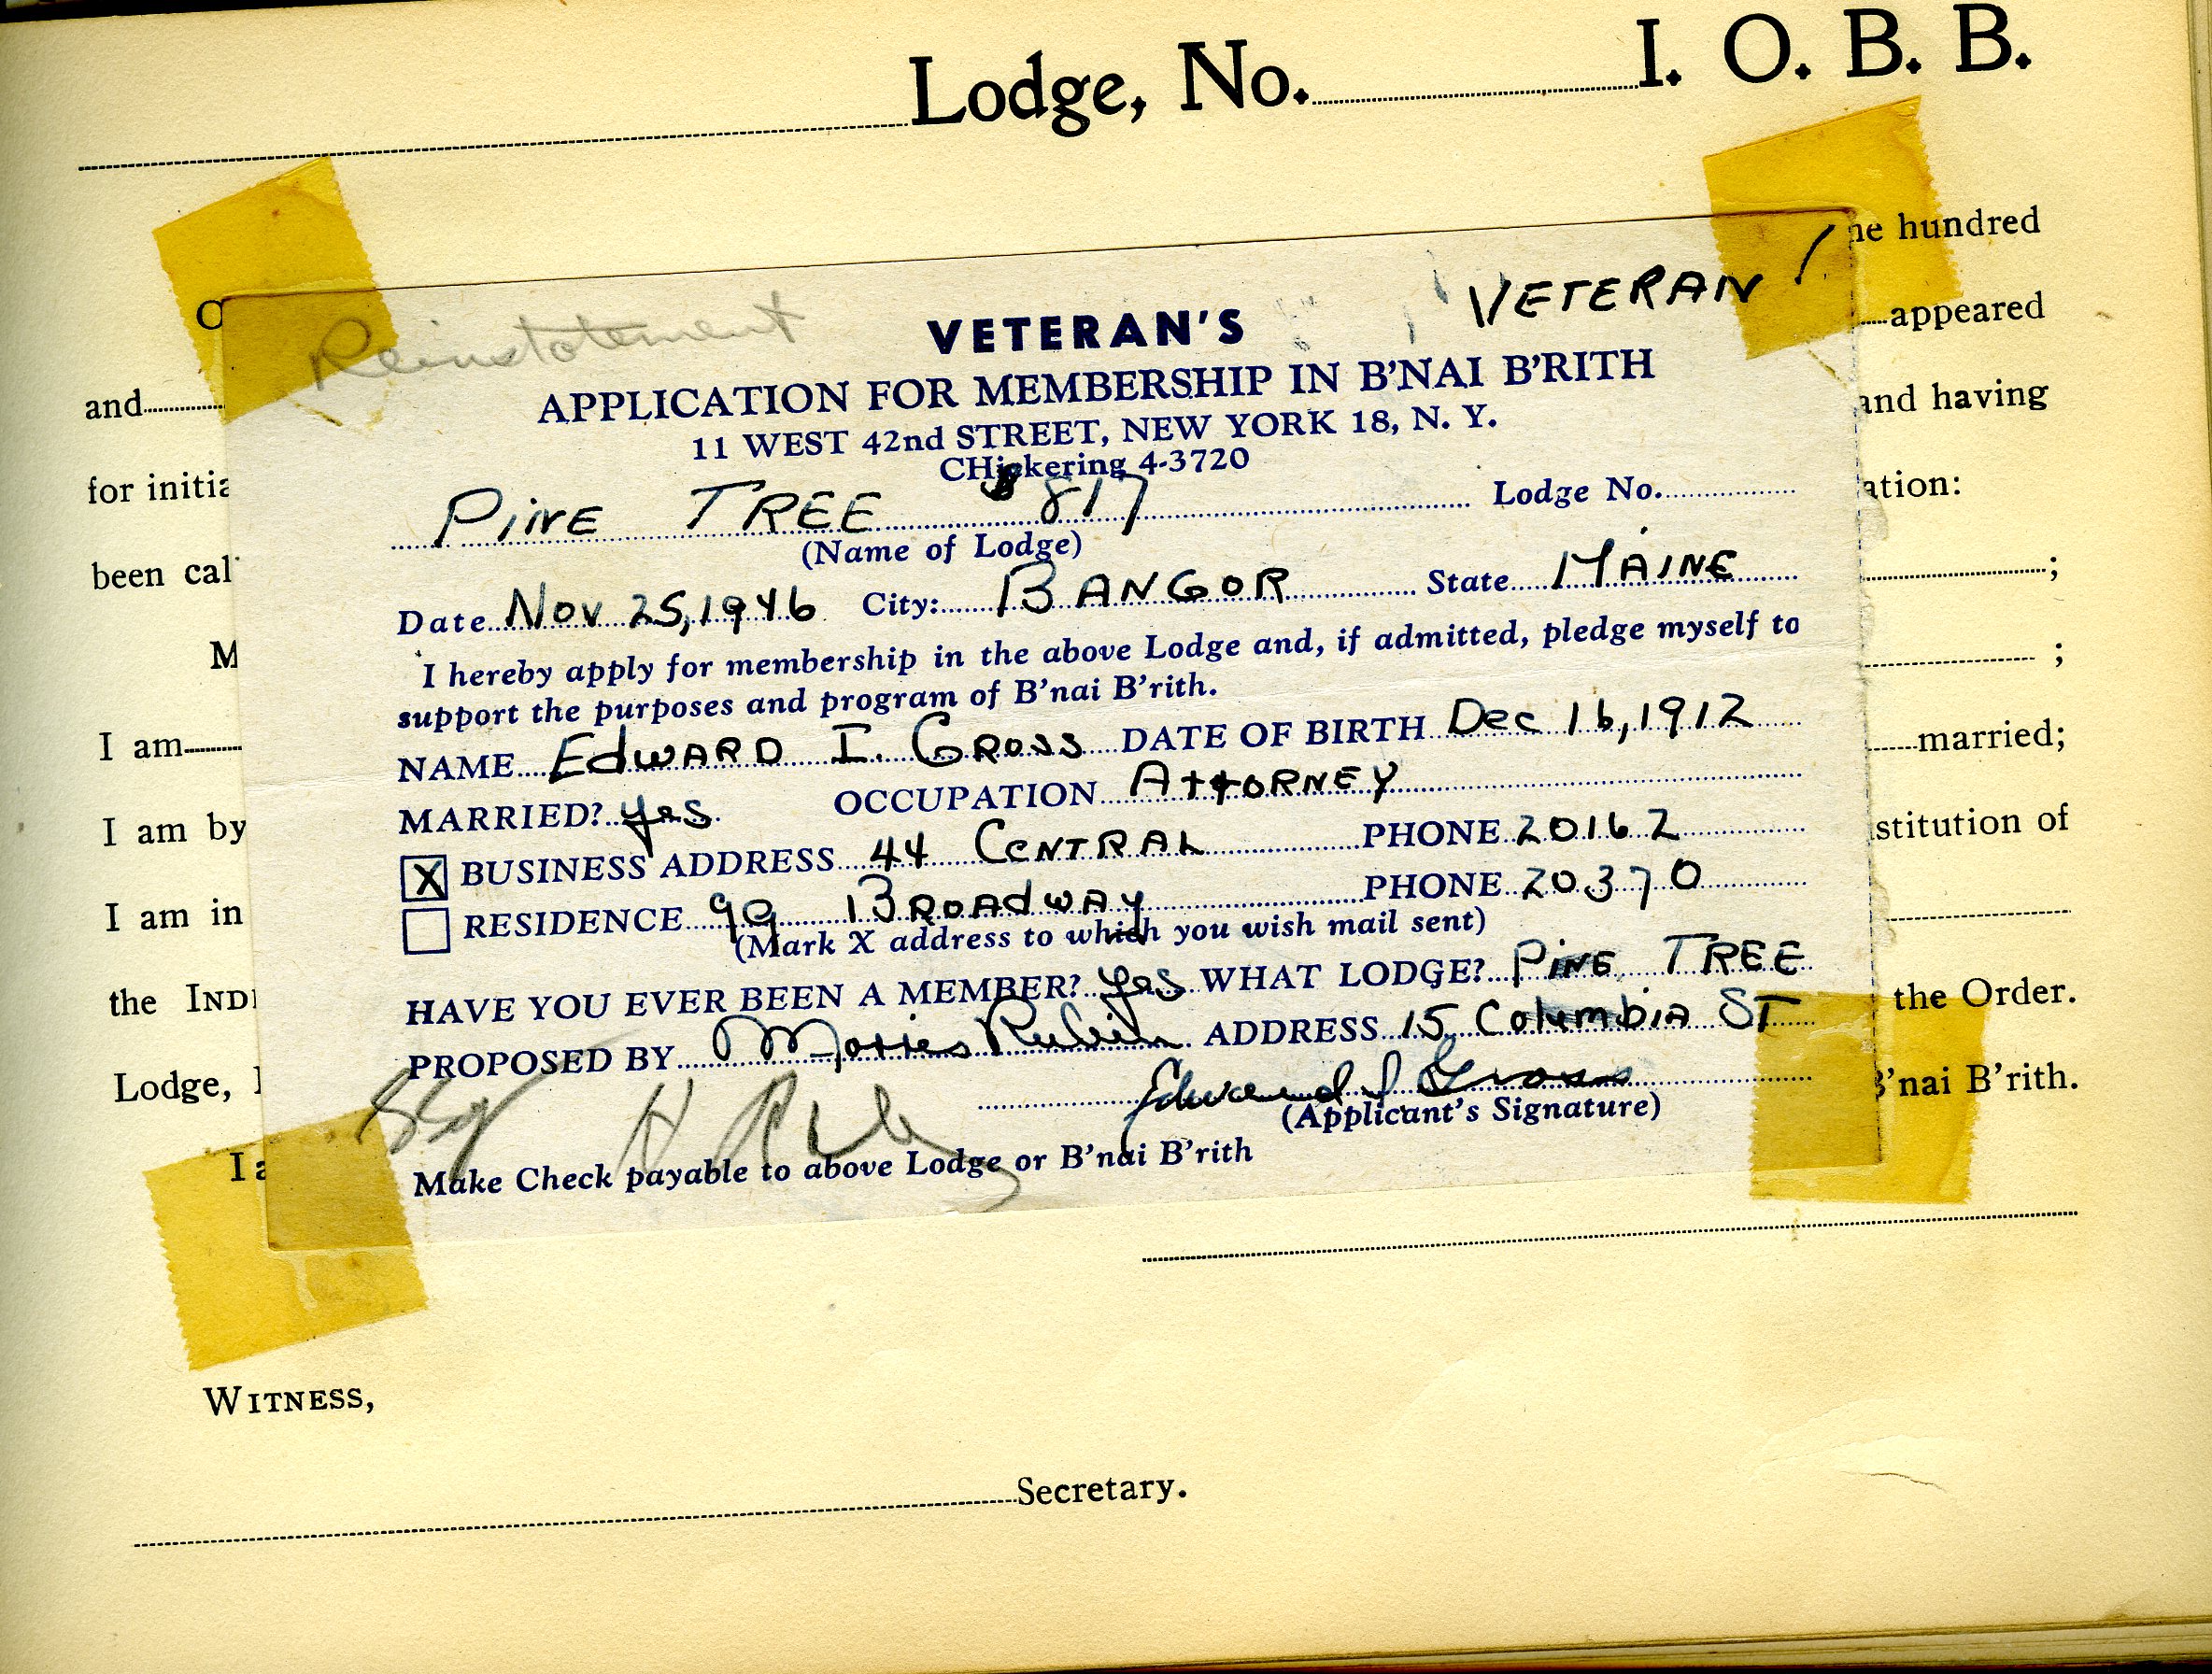 Lodge, No. I. O. B. B.
he hundred
VETERAN !
Reinstatement VETERAN'S
appeared
APPLICATION FOR MEMBERSHIP IN B'NAI B'RITH
and and having
11 WEST 42nd STREET, NEW YORK 18, N. Y.
CHickering 4-3720
for initia PINE TREE 817 Lodge No. ation:
(Name of Lodge)
been cal
Date Nov 25, 1946 City: BANGOR State MAINE ;
M I hereby apply for membership in the above Lodge and, if admitted, pledge myself to ;
support the purposes and program of B'nai B'rith.
I am NAME EdwARD I. GROSS DATE OF BIRTH Dec 16, 1912 married;
MARRIED? yes OCCUPATION ATTORNEY
I am by X BUSINESS ADDRESS 44 CENTRAL PHONE 20162 stitution of
I am in RESIDENCE 99 BROADWAY PHONE 20370
(Mark X address to which you wish mail sent)
the INDE HAVE YOU EVER BEEN A MEMBER? yes WHAT LODGE? PINE TREE the Order.
Lodge, PROPOSED BY Morris Rubin ADDRESS 15 Columbia ST B'nai B'rith.
Edward I Gross
(Applicant's Signature)
I a Make Check payable to above Lodge or B'nai B'rith
WITNESS,
Secretary.